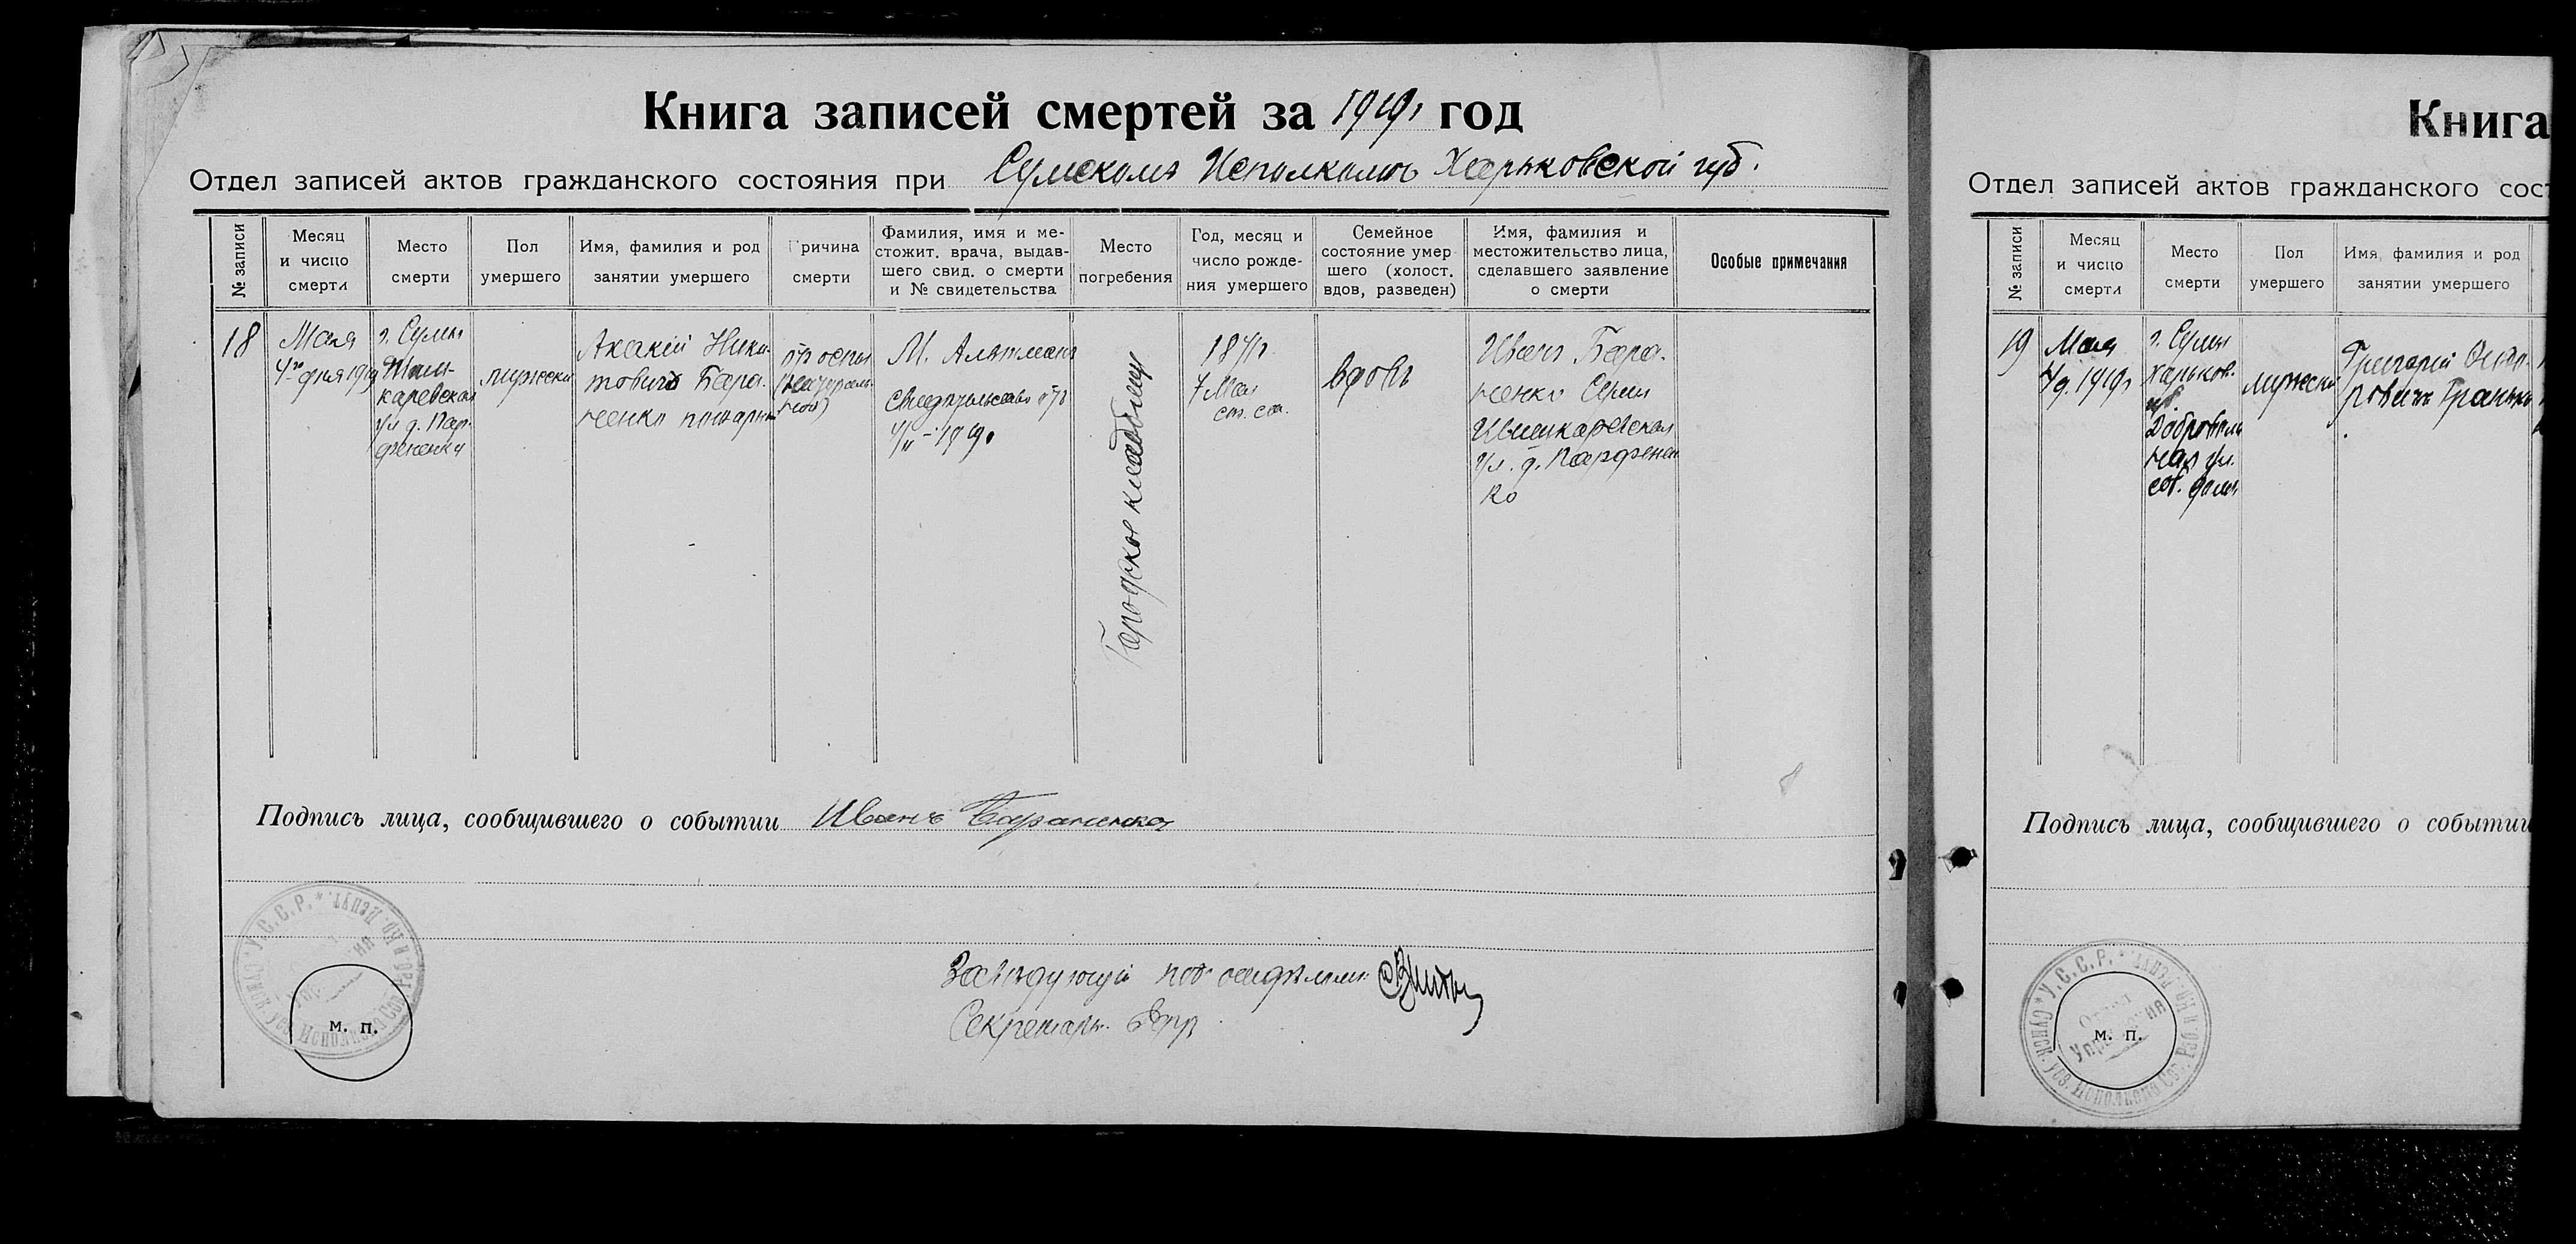 Книга записей смертей за 1919 г год
Отдел записей актов гражданского состояния при Сумскомъ Исполкомѣ Харьковской губ.
№ записи
Месяц
и число
смерти
Место
смерти
Пол
умершего
Имя, фамилия и род
занятии умершего
Причина
смерти
Фамилия, имя и ме-
стожит. врача, выдав-
шего свид. о смерти
и № свидетельства
Место
погребения
Год, месяц и
число рожде-
ния умершего
Семейное
состояние умер
шего (холост.
вдов, разведен)
Имя, фамилия и
местожительство лица,
сделавшего заявление
о смерти
Особые примечания
18
Мая
4го дня 1919
г. Сумы
каревская
ул д. Пар-
фененки
мужеск
Акакій Ники-
товичъ Бара-
ненко пожарн
отъ оспы
М. Альтманъ
Свидѣтельство отъ
1919
Городское кладбище
7 Мая
ст. ст.
вдовъ
Иванъ Бара-
ненко Сумы
Ивашкаревская
ул. д. Парфенен
ко
Подпись лица, сообщившего о событии Иванъ Бараненко
Завѣдующій подотдѣломъ
Секретарь
У.С.С.Р.
м. п.
Книга
Отдел записей актов гражданского сост
№ записи
Месяц
и число
смерти
Место
смерти
Пол
умершего
Имя, фамилия и род
занятии умершего
19
Мая
4 д. 1919 г
г. Сумы
Харьков.
губ.
Доброволь
ная ул.
соб. домъ
мужеск
Григорій
Подпись лица, сообщившего о событии
У.С.С.Р.
м. п.